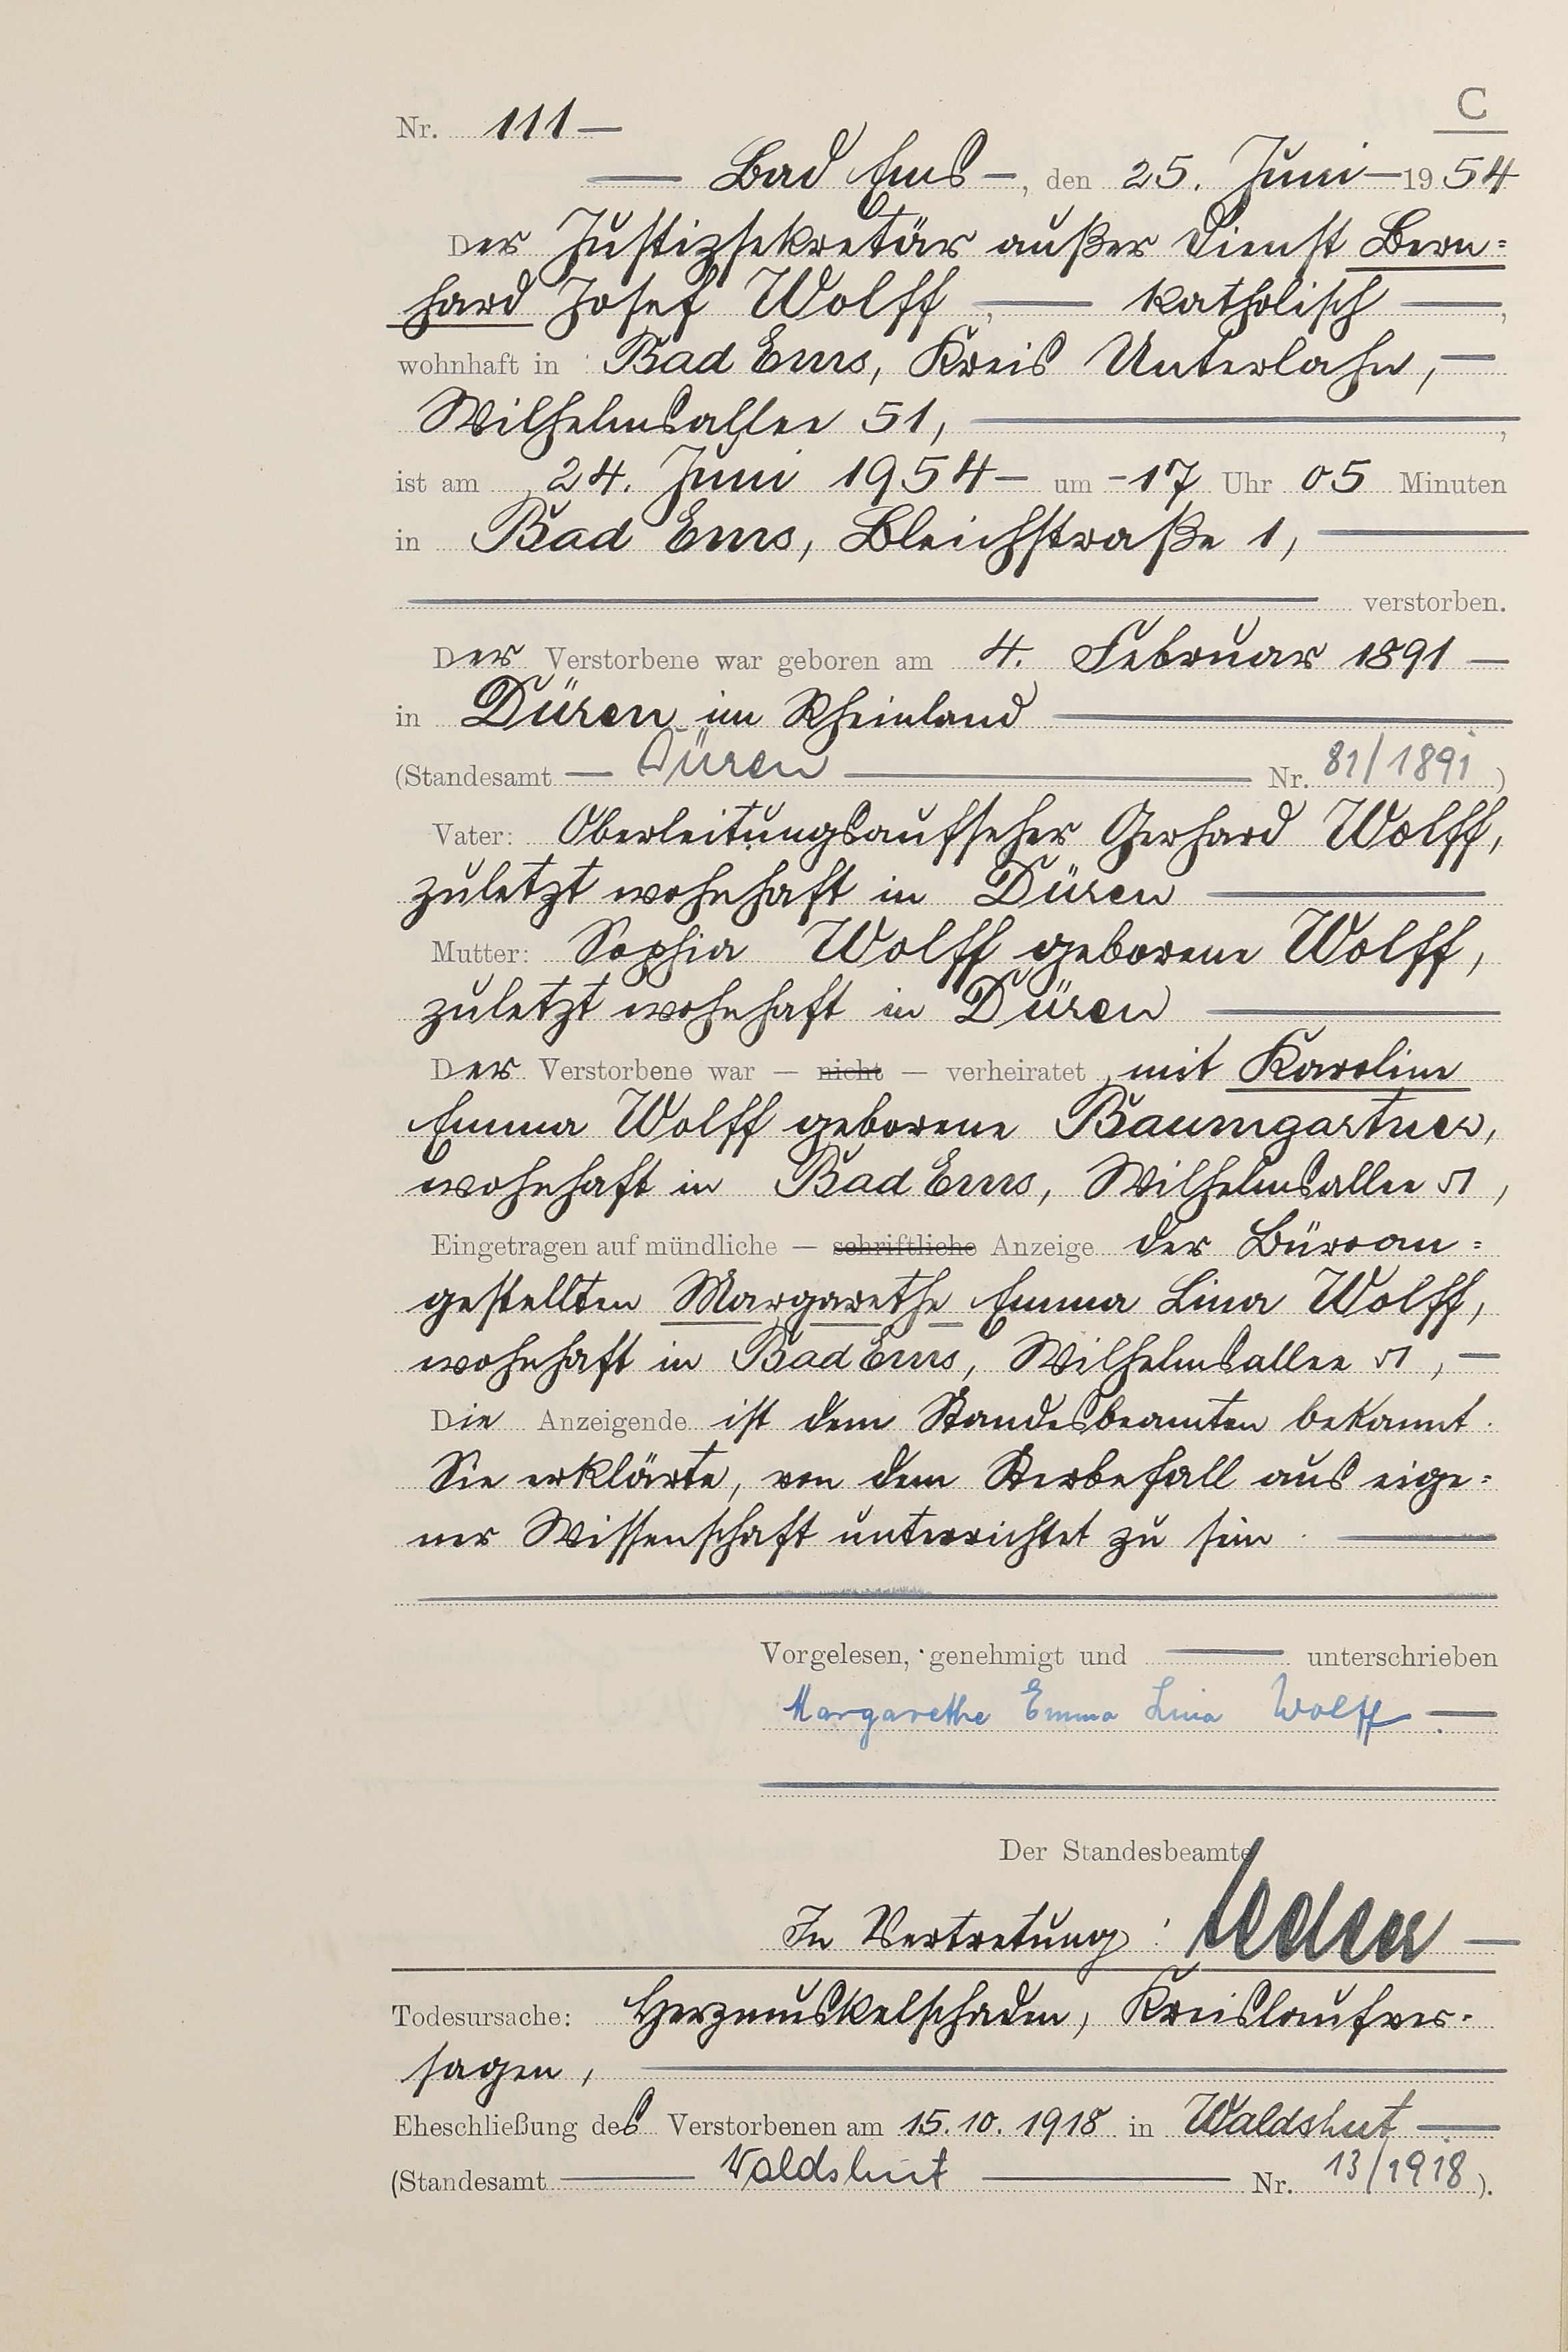 C
Nr. 111 —
— Bad Ems —, den 25. Juni — 1954
Der Justizsekretär außer Dienst Bern=
hard Josef Wolff, — katholisch —,
wohnhaft in Bad Ems, Kreis Unterlahn, —
Wilhelmsallee 51, —,
ist am 24. Juni 1954 — um - 17 Uhr 05 Minuten
in Bad Ems, Bleichstraße 1, —
— verstorben.
Der Verstorbene war geboren am 4. Februar 1891 —
in Düren im Rheinland —
(Standesamt — Düren — Nr. 81/1891)
Vater: Oberleitungsaufseher Gerhard Wolff,
zuletzt wohnhaft in Düren —
Mutter: Sophia Wolff geborene Wolff,
zuletzt wohnhaft in Düren —
Der Verstorbene war — nicht — verheiratet, mit Karoline
Emma Wolff geborene Baumgartner,
wohnhaft in Bad Ems, Wilhelmsallee 51,
Eingetragen auf mündliche — schriftliche Anzeige der Büroan=
gestellten Margarethe Emma Lina Wolff,
wohnhaft in Bad Ems, Wilhelmsallee 51, —
Die Anzeigende ist dem Standesbeamten bekannt.
Sie erklärte, von dem Sterbefall aus eige=
ner Wissenschaft unterrichtet zu sein. —
Vorgelesen, genehmigt und — unterschrieben
Margarethe Emma Lina Wolff. —
Der Standesbeamte
In Vertretung: —
Todesursache: Herzmuskelschaden, Kreislaufver-
sagen, —
Eheschließung des Verstorbenen am 15.10.1918 in Waldshut —
(Standesamt — Waldshut — Nr. 13/1918).